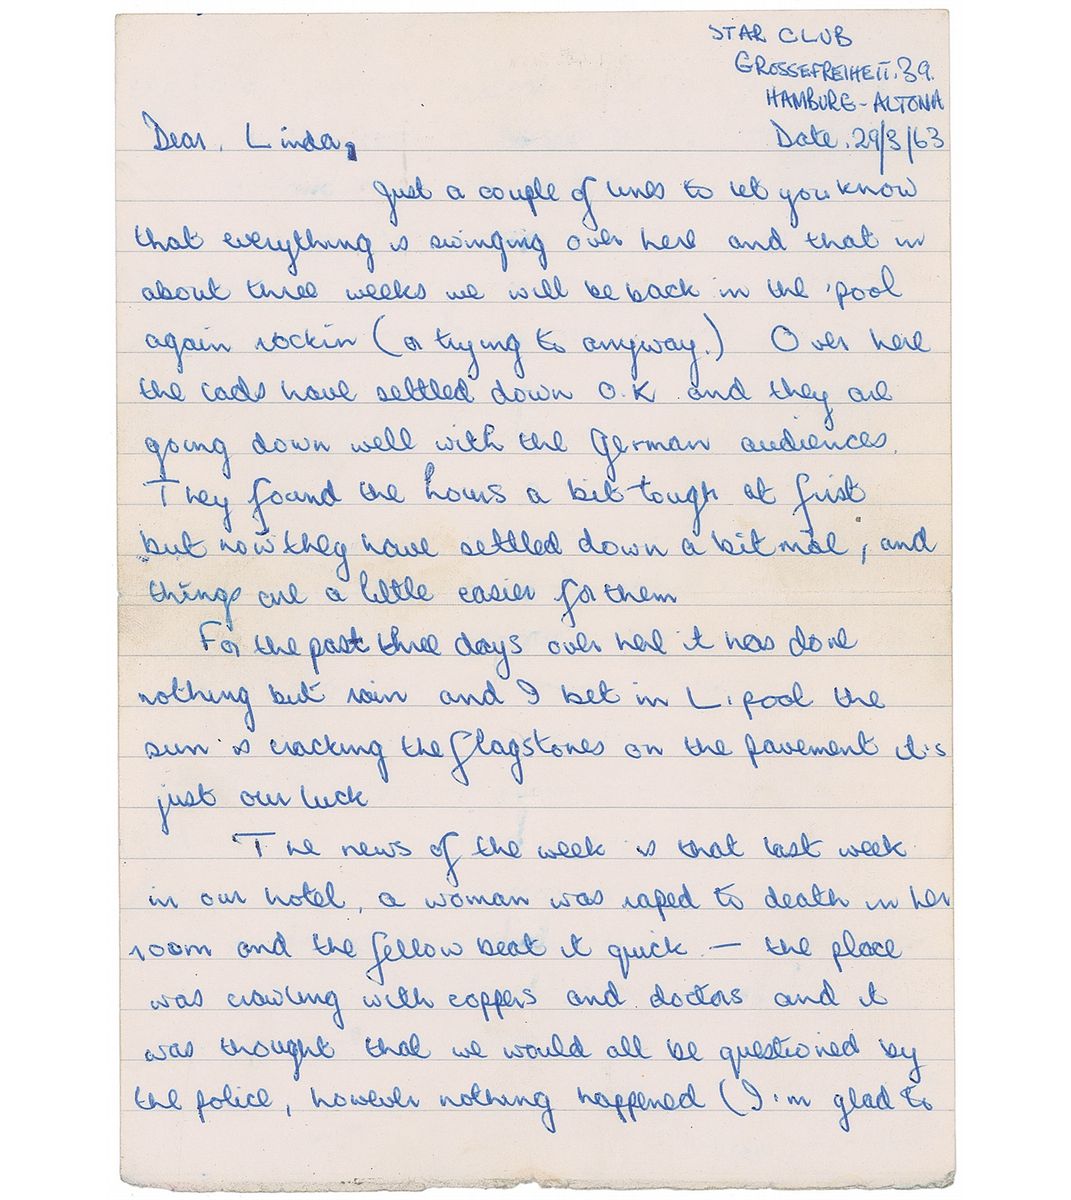 STAR CLUB
GROSSEFREIHEIT.39.
HAMBURG-ALTONA
Date. 29/3/63
Dear. Linda,
Just a couple of lines to let you know
that everything is swinging over here and that in
about three weeks we will be back in the 'pool
again rockin (or trying to anyway.) Over here
the lads have settled down O.K and they are
going down well with the German audiences.
They found the hours a bit tough at frist
but now they have settled down a bit more, and
things are a little easier for them
For the past three days over here it has done
nothing but rain and I bet in L.pool the
sun is cracking the flagstones on the pavement it's
just our luck
The news of the week is that last week
in our hotel, a woman was raped to death in her
room and the fellow beat it quick — the place
was crawling with coppers and doctors and it
was thought that we would all be questioned by
the police, however nothing happened (I'm glad to